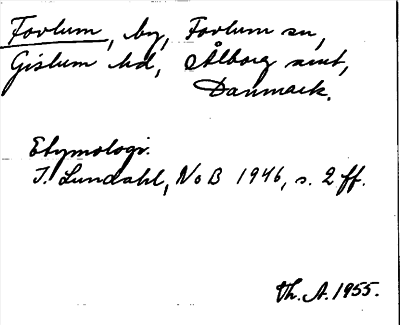 Fovlum, by, Fovlum sn,
Gislum hd, Ålborg amt,
Danmark.
Etymologi.
I. Lundahl, NoB 1946, s. 2 ff.
Th. A. 1955.